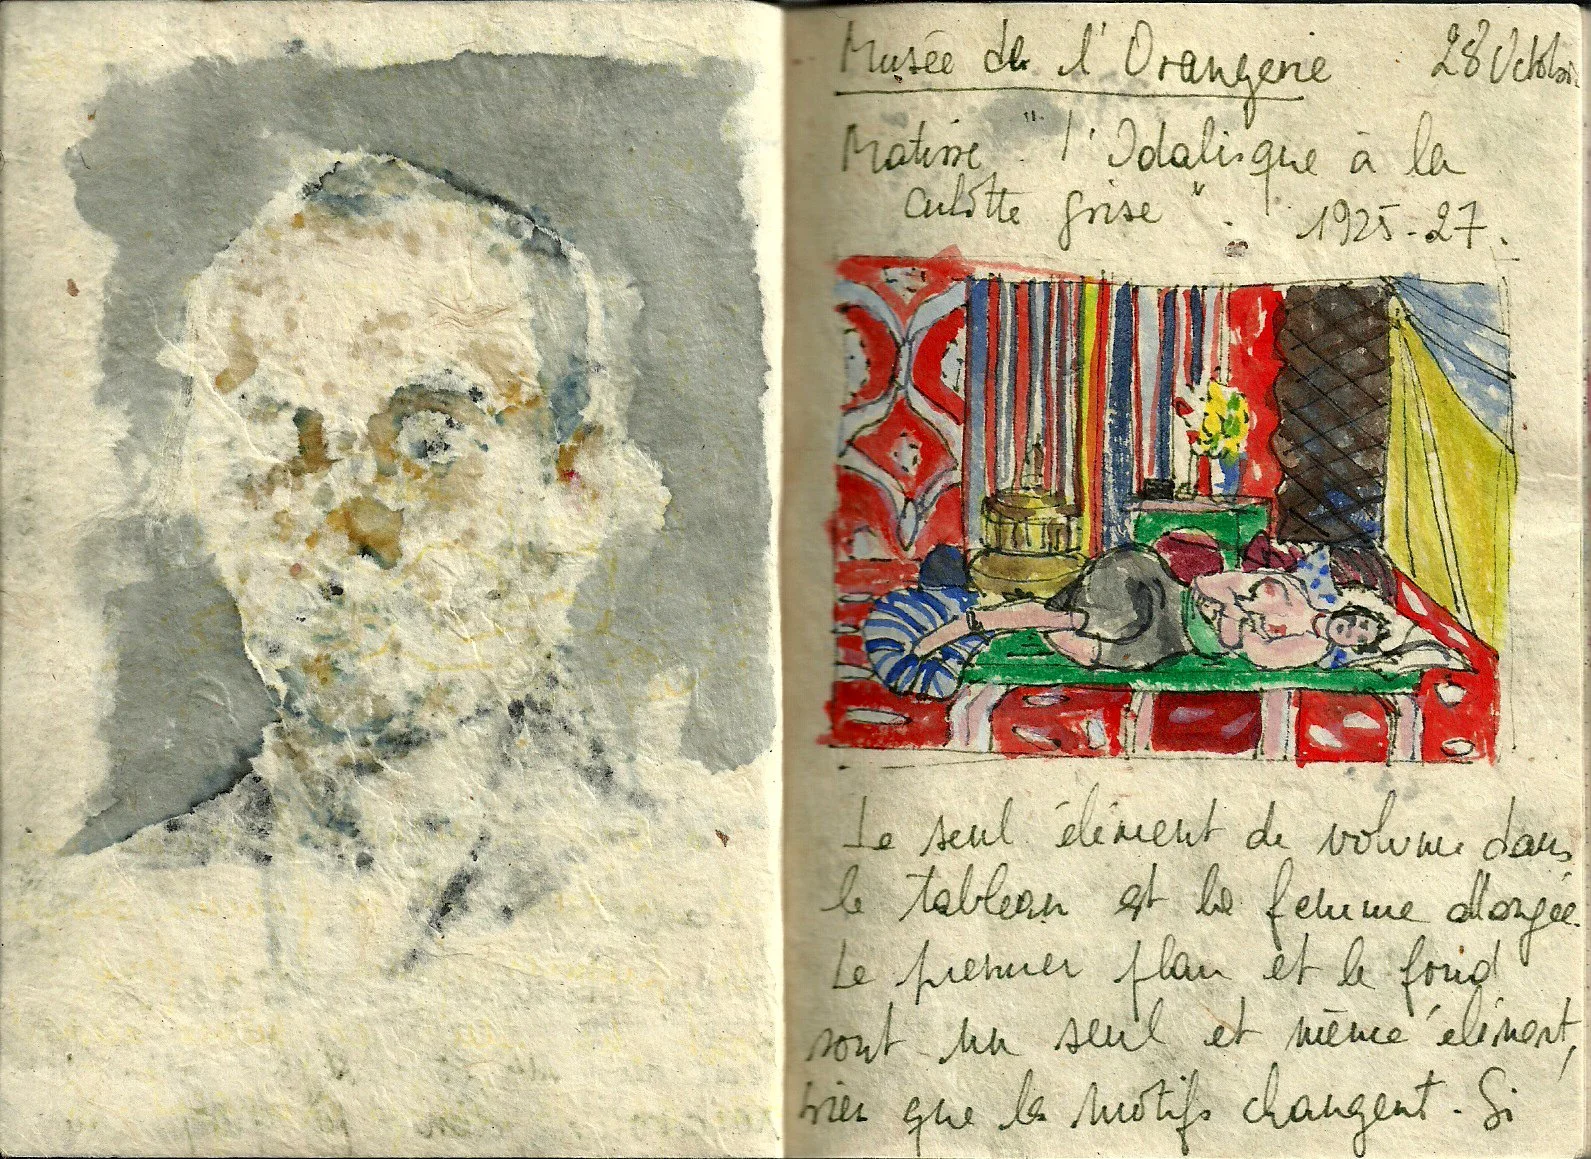 Musée de l'Orangerie 28 Octobre
Matisse "l'Odalisque à la
culotte grise". 1925-27.
Le seul élément de volume dans
le tableau est la femme allongée.
Le premier plan et le fond
sont un seul et même élément,
bien que les motifs changent. Si